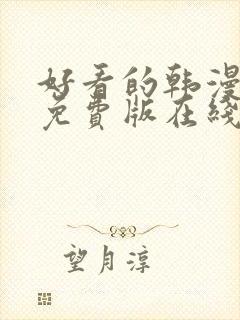 好看的韩漫
免费版在线
望月淳